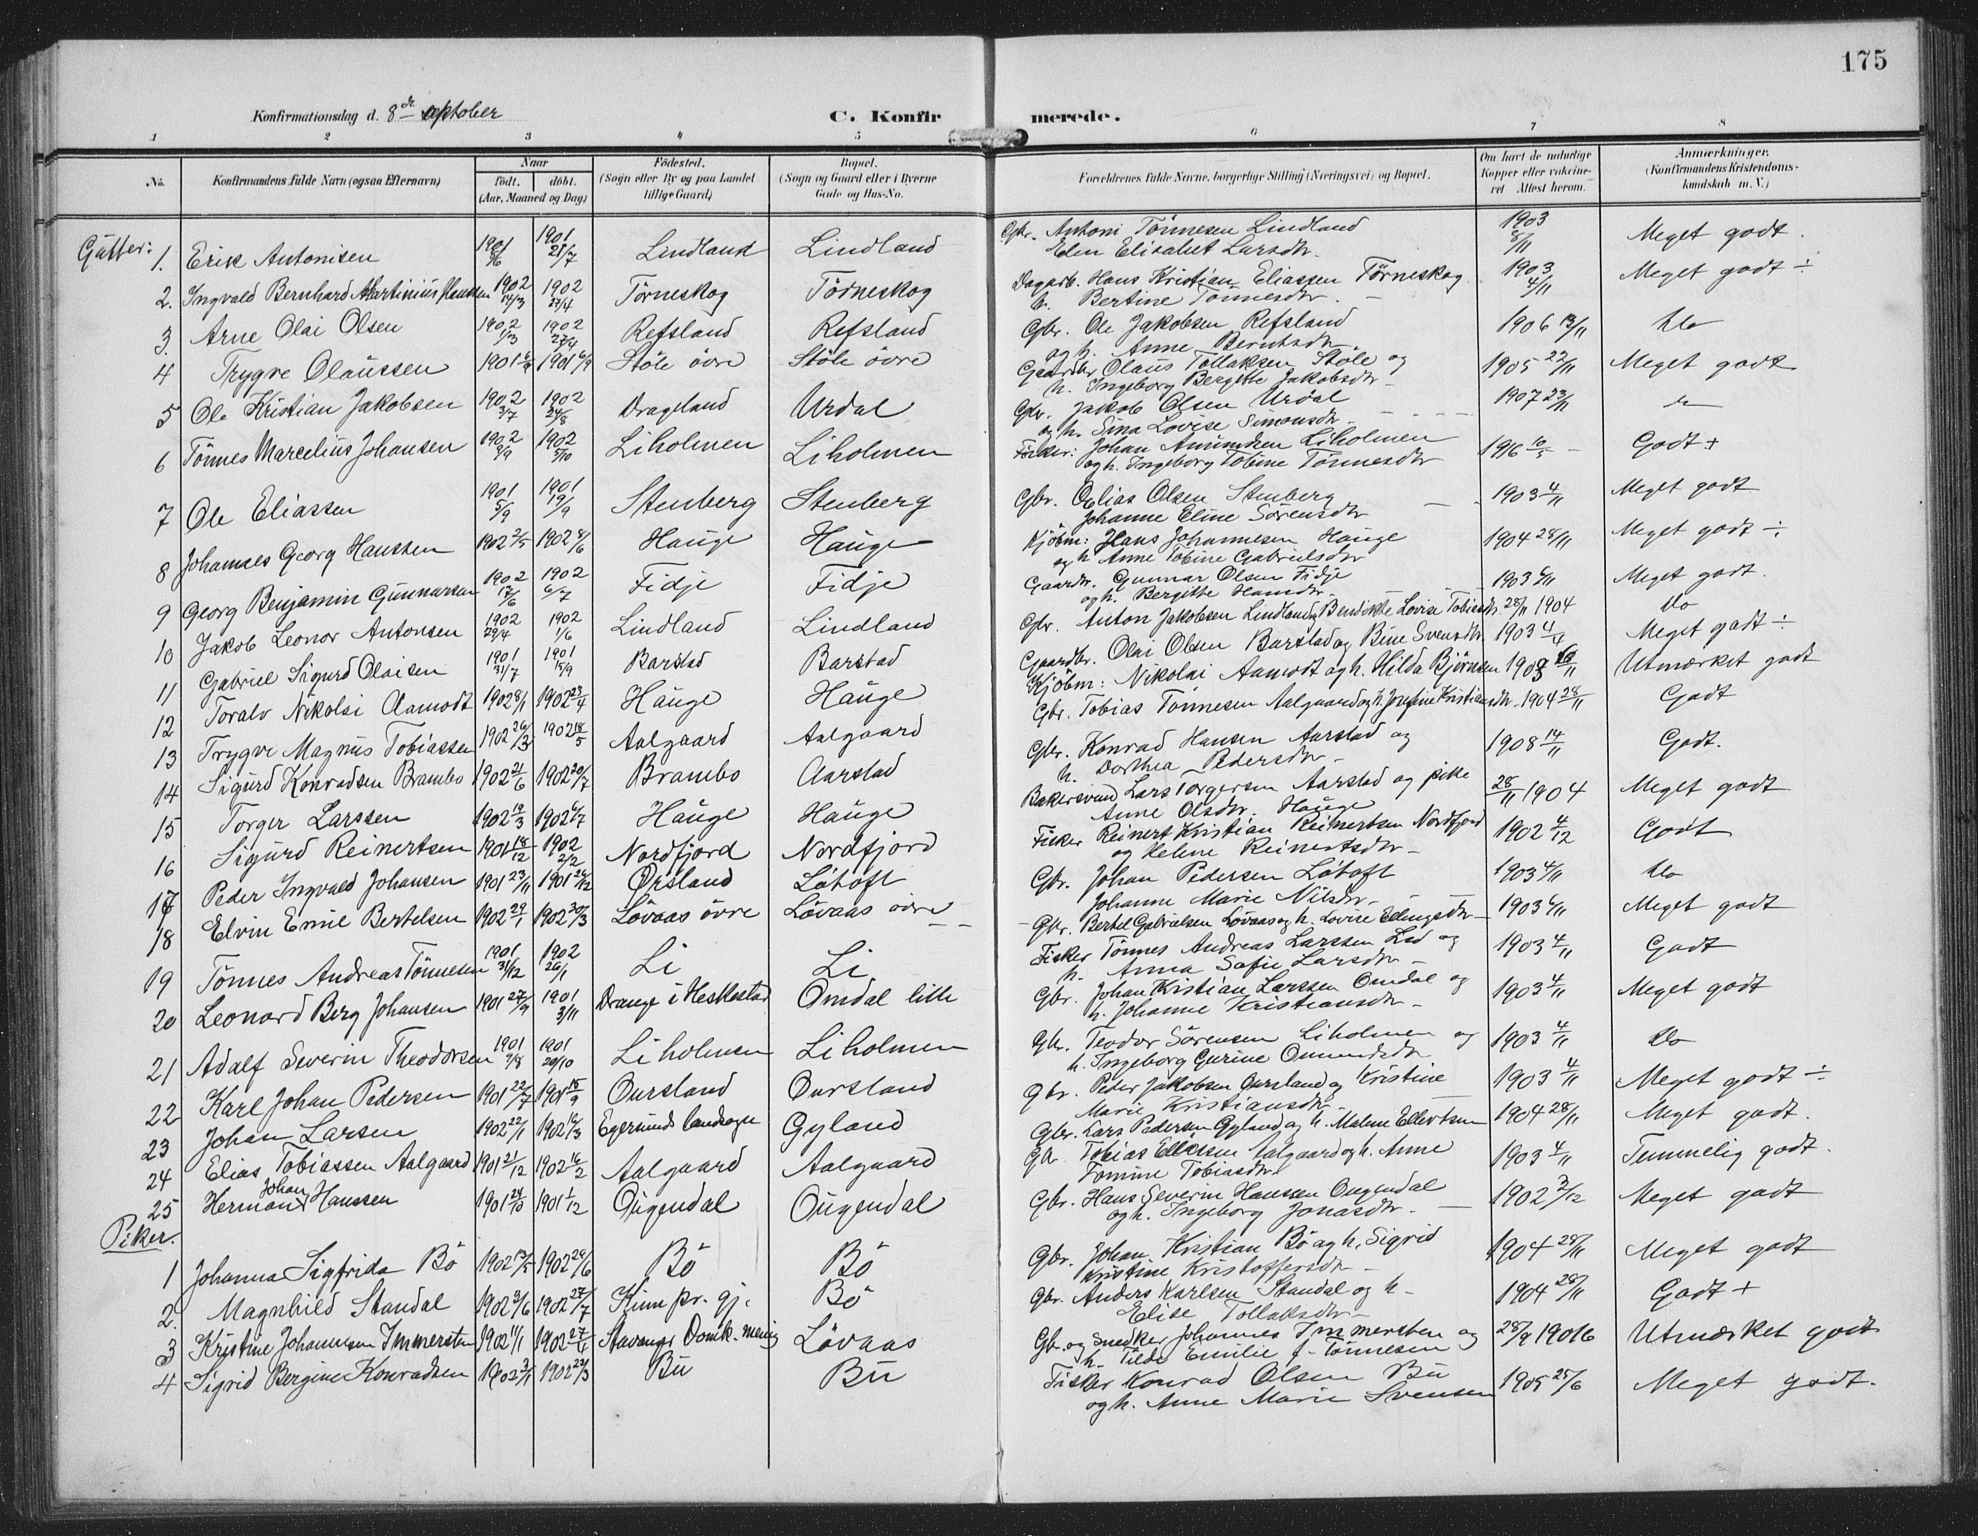 175
Konfirmationsdag d. 8de oktober C. Konfirmerede.
1 2 3 4 5 6 7 8
No. Konfirmandens fulde Navn (ogsaa Efternavn) Naar födt. döbt. (Aar, Maaned og Dag) Födested. (Sogn eller By og paa Landet tillige Gaard) Bopæl. (Sogn og Gaard eller i Byerne Gade og Hus-No. Forældrenes fulde Navne, borgerlige Stilling (Næringsvei) og Bopæl. Om havt de naturlige Kopper eller vakcineret Attest herom. Anmærkninger. (Konfirmandens Kristendomskundskab m. V.)
Gutter:
1. Erik Antonisen 1901 1901 21/7 Lindland Lindland Gbr. Antoni Tönnesen Lindland 1903 Meget godt.
Elen Elisabet Larsdtr.
2. Ingvald Bernhard Martinius Hanssen 1902 14/3 1902 27/4 Törneskog Törneskog Dagarb. Hans Kristian Eliassen Törneskog 1903 4/11 Meget godt ÷
h. Bertine Tönnesdtr.
3. Arne Olai Olsen 1902 1/3 1902 27/4 Refsland Refsland Gbr. Ole Jakobsen Refsland 1906 13/11 Do
og h. Anne Berntsdtr.
4 Trygve Olaussen 1901 1901 6/9 Stöle övre Stöle övre Gaardbr Olaus Tollaksen Stöle og 1905 22/11 Meget godt
h. Ingeborg Bergitte Jakobsdtr
5 Ole Kristian Jakobsen 1902 3/7 1902 24/8 Drageland Urdal Gbr. Jakob Olsen Urdal 1907 23/11
og h. Sina Lovise Simonsdtr
6 Tönnes Marcelius Johansen 1902 9/9 1902 5/10 Liholmen Liholmen Fisker: Johan Liholmen 1916 Godt +
og h. Ingeborg Tobine Tönnesdtr
7 Ole Eliassen 1901 5/9 1901 19/9 Stenberg Stenberg Gbr. Elias Olsen Stenberg 1903 4/11 Meget godt
Johanne Eline Sörensdtr
8 Johannes Georg Hanssen 1902 2/5 1902 8/6 Hauge Hauge Kjöbm: Hans Johannesen Hauge 1904 28/11 Meget godt ÷
og h Anne Tobine Gabrielsdtr
9 Georg Benjamin Gunnarsen 1902 17/6 1902 6/7 Fidje Fidje Gaardbr. Gunnar Olsen Fidje 1903 Meget godt.
og h. Bergitte Hansdtr.
10 Jakob Leonor Antonsen 1902 29/4 1902 1/6 Lindland Lindland Gbr. Anton Jakobsen Lindland og Bendikke Lovise Tobiasdtr 28/11 1904 Do
11 Gabriel Sigurd Olaisen 1901 31/7 1901 15/9 Barstad Barstad Gaardbr. Olai Olsen Barstad og Bine Svensdtr 1903 4/11 Meget godt ÷
12 Toralv Nikolai Aamodt 1902 8/1 1902 23/4 Hauge Hauge Kjöbm: Nikolai Aamodt og h. Hilda Bjørnsen Utmærket godt
13 Trygve Magnus Tobiassen 1902 26/3 1902 18/5 Aalgaard Aalgaard Gbr. Tobias Tönnesen Aalgaard og h. Josefine Kristiansdtr. 1904 28/11 Godt
14 Sigurd Konradsen Brambo 1902 21/6 1902 20/7 Brambo Aarstad Gbr. Konrad Hansen Aarstad og 1908 14/11 Godt.
h. Dorthea Pedersdtr
15 Torger Larssen 1902 19/3 1902 6/7 Hauge Hauge Bakersvend Lars Torgersen Aarstad og pike 28/11 1904 Meget godt
Anne Olsdtr. Hauge
16 Sigurd Reinertsen 1901 18/12 1902 2/2 Nordfjord Nordfjord Fisker Reinert Kristian Reinertsen Nordfjord 1902 4/12 Godt
og Helene Reinertsdtr
17 Peder Ingvald Johansen 1901 23/11 1901 26/12 Örsland Lötoft Gbr. Johan Pedersen Lötoft 1903 4/11 Do
Johanne Marie Nilsdtr
18 Elvin Emil Bertelsen 1902 29/1 1902 30/3 Lövaas övre Lövaas övre Gbr. Bertel Gabrielsen Lövaas og h. Lovise Edingsdtr 1903 Meget godt
19 Tönnes Andreas Tönnesen 1901 31/12 1902 26/1 Li Li Fisker Tönnes Andreas Larssen Lid og 1903 4/11 Godt
h. Anna Sofie Larsdtr
20 Leonard Berg Johansen 1901 27/9 1901 3/11 Drange i Heskestad Omdal lille Gbr. Johan Kristian Larssen Omdal og 1903 4/11 Meget godt
h. Johanne Kristiansdtr
21 Adolf Severin Theodorsen 1901 9/8 1901 20/10 Liholmen Liholmen Gbr. Teodor Sörensen Liholmen og 1903 4/11 Do
h. Ingeborg Gurine Omundsdtr
22 Karl Johan Pedersen 1901 22/7 1901 15/9 Oursland Oursland Gbr. Peder Jakobsen Oursland og Kristine 1903 4/11 Meget godt ÷
Marie Kristiansdtr.
23 Johan Larsen 1902 22/1 1902 16/3 Egersunds landsogn Gyland Gbr. Lars Pedersen Gyland og h. Malene Ellertsen 1904 28/11 Meget godt.
24 Elias Tobiassen Aalgaard 1901 21/12 1902 16/2 Aalgaard Aalgaard Gbr Tobias Aalgaard og h. Anne 1903 4/11 Temmelig godt.
Tomine Tobiasdtr
25 Herman Johan Hanssen 1901 24/10 1901 1/12 Ougendal Ougendal Gbr. Hans Severin Hanssen Ougendal 1902 3/12 Meget godt
og h. Ingeborg Jonasdtr.
Piker.
1 Johanna Sigfrida Bö 1902 13/5 1902 24/6 Bö Bö Gbr. Johan Kristian Bö og h. Sigrid 1904 28/11 Meget godt
Kristine Kristoffersdtr
2. Magnhild Standal 1902 3/6 1902 27/7 Kinn pr. gj. Bö Gbr. Anders Karlsen Standal og h 1904 28/11 Godt +
Elise Tollaksdtr
3 Kristine Johannesen Immersten 1902 11/1 1902 27/4 Stavanger Domk. menig Lövaas Gbr. og Snedker Johannes Immersten og 28/9 1916 Utmærket godt
h. Tilde Emilie f. Tönnesen
4 Sigrid Bergine Konradsen 1902 3/1 1902 23/3 Bu Bu Fisker Konrad Olsen Bu 1905 25/6 Meget godt.
og h. Anne Marie Svensen